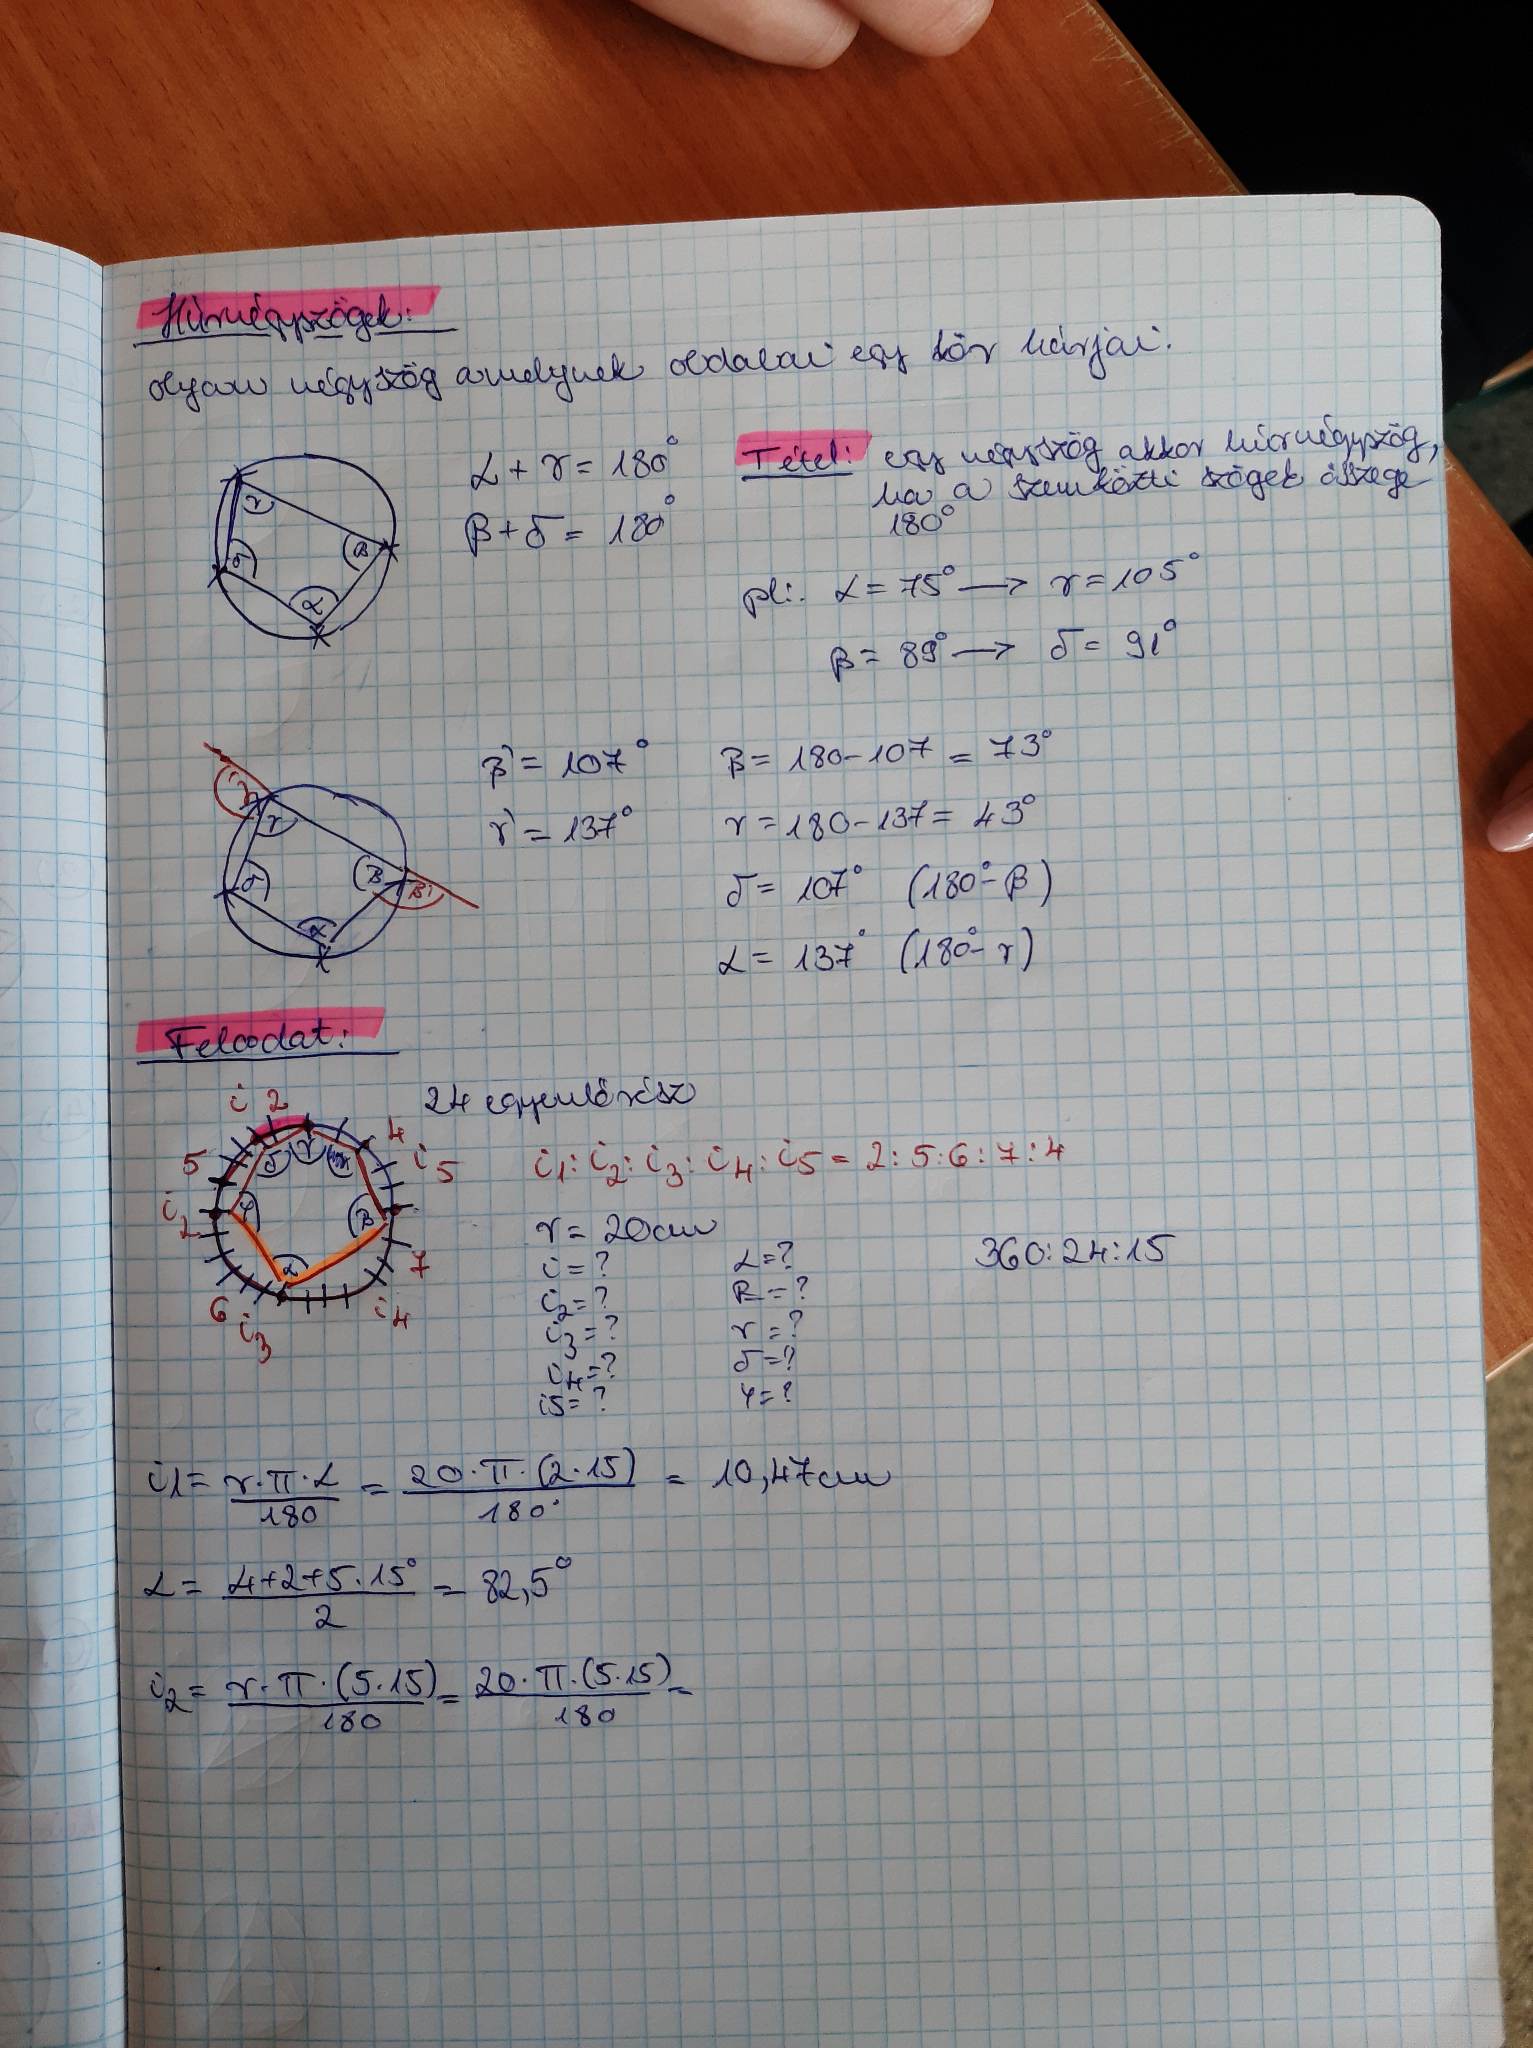 Húrnégyszögek:
olyan négyszög amelynek oldalai egy kör húrjai.
α + γ = 180°
β + δ = 180°
γ
β
δ
α
Tétel: egy négyszög akkor húrnégyszög,
ha a szemközti szögek összege
180°
pl:. α = 75° → γ = 105°
β = 89° → δ = 91°
γ'
γ
δ
β
β'
α
β' = 107°
γ' = 137°
β = 180-107 = 73°
γ = 180-137 = 43°
δ = 107° (180°-β)
α = 137° (180°-γ)
Feladat:
24 egyenlő rész
i 2
4
i5
5
i2
6
i3
7
i4
δ
γ
φ
β
α
i1 : i2 : i3 : i4 : i5 = 2 : 5 : 6 : 7 : 4
r = 20cm
i = ?
i2 = ?
i3 = ?
i4 = ?
i5 = ?
α = ?
β = ?
γ = ?
δ = ?
φ = ?
360:24:15
i1 = r·π·α / 180 = 20·π·(2·15) / 180° = 10,47cm
α = 4+2+5·15° / 2 = 82,5°
i2 = r·π·(5·15) / 180 = 20·π·(5·15) / 180 =